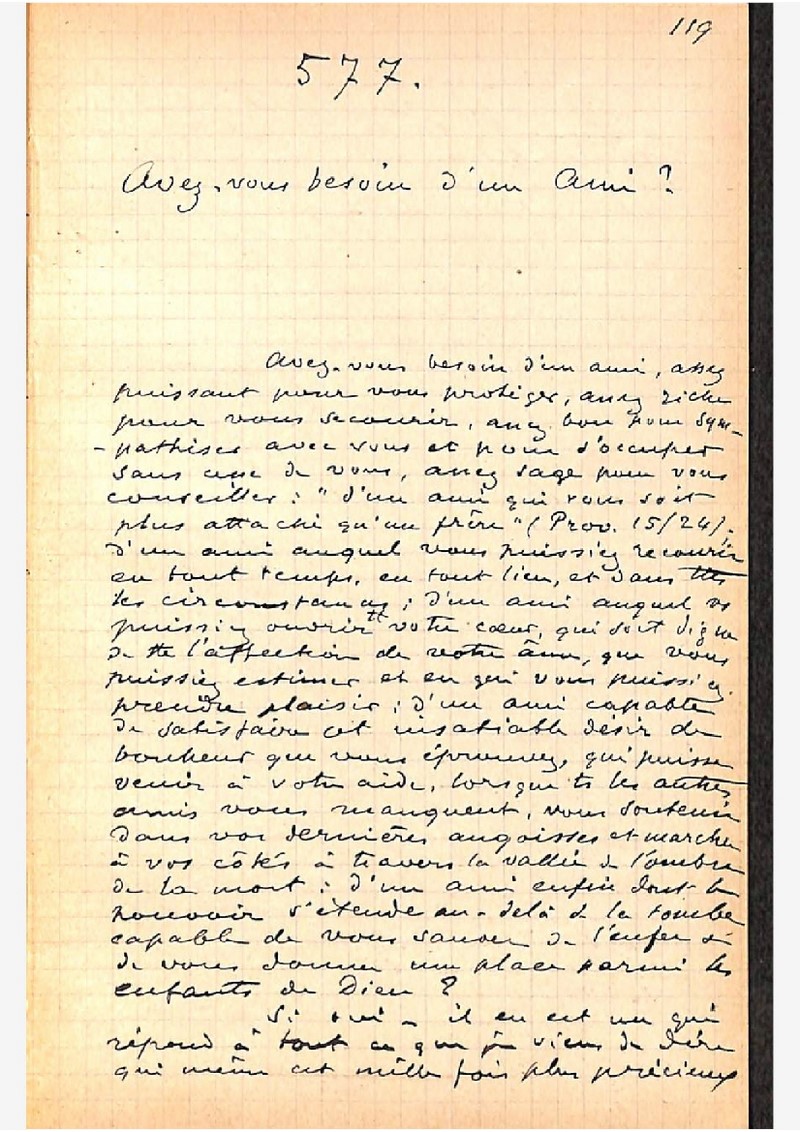 119
577.
Avez-vous besoin d'un Ami ?
Avez-vous besoin d'un ami, assez
puissant pour vous protéger, assez riche
pour vous secourir, assez bon pour sym-
-pathiser avec vous et pour s'occuper
sans cesse de vous, assez sage pour vous
conseiller : "d'un ami qui vous soit
plus attaché qu'un frère" (Prov. 15/24).
d'un ami auquel vous puissiez recourir
en tout temps, en tout lieu, et dans ttes
les circonstances ; d'un ami auquel vs
puissiez ouvrir tt votre cœur, qui soit digne
de tte l'affection de votre âme, que vous
puissiez estimer et en qui vous puissiez
prendre plaisir ; d'un ami capable
de satisfaire cet insatiable désir de
bonheur que vous éprouvez, qui puisse
venir à votre aide, lorsque ts les autres
amis vous manquent, vous soutenir
dans vos dernières angoisses et marcher
à vos côtés à travers la vallée de l'ombre
de la mort ; d'un ami enfin dont le
pouvoir s'étende au-delà de la tombe
capable de vous sauver de l'enfer &
de vous donner une place parmi les
enfants de Dieu ?
Si oui - il en est un qui
répond à tout ce que je viens de dire
qui même est mille fois plus précieux